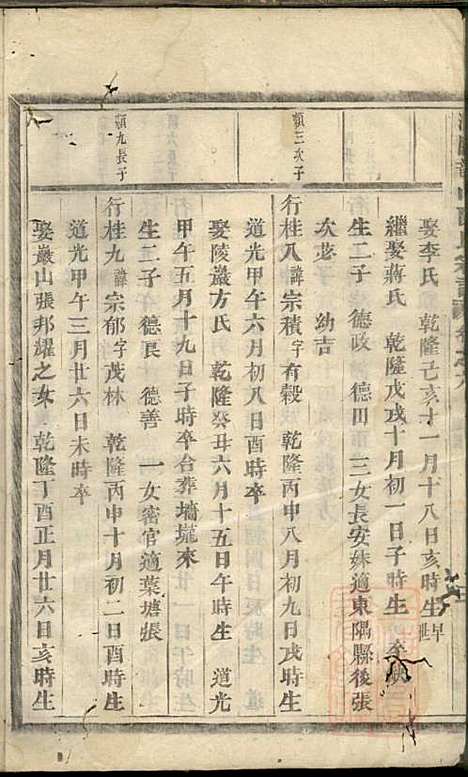 娶李氏 乾隆己亥十一月十八日亥時生
繼娶蔣氏 乾隆戊戌十月初一日子時生 卒
生二子 德政 德田 三女長安妹適東隅縣後張
次苾 幼吉
類三次子
行桂八諱宗積字有穀 乾隆丙申八月初九日戌時生
道光甲午六月初八日酉時卒
娶陵巖方氏 乾隆癸丑六月十五日午時生 道光
甲午五月十九日子時卒合葬墻壠來
生二子 德良 德善 一女密官適葉塘張
類九長子
行桂九諱宗郁字茂林 乾隆丙申十月初二日酉時生
道光甲午三月廿六日未時卒
娶巖山張邦耀之女 乾隆丁酉正月廿六日亥時生